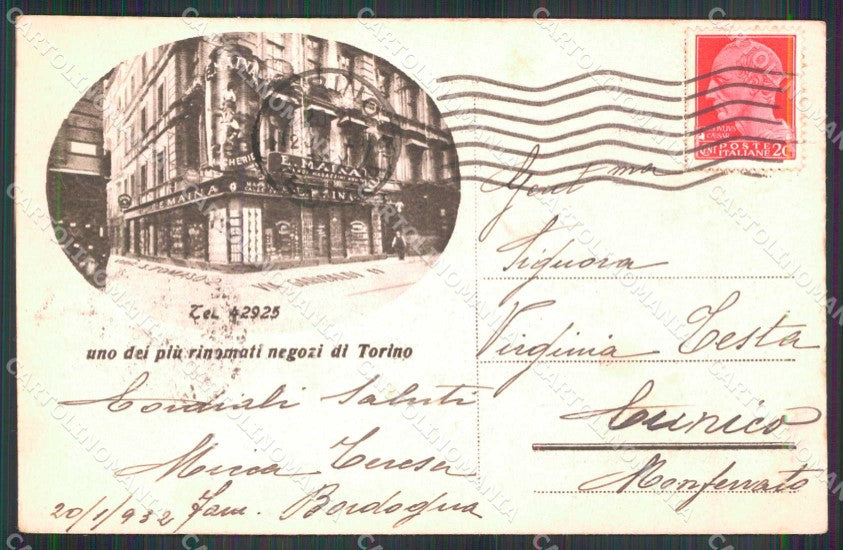 E. MAINA
E. MAINA
S. TOMASO
VIA GARIBALDI
Tel. 42925
uno dei più rinomati negozi di Torino
Cordiali Saluti
Micca Teresa
20/1/932 Fam. Bordogna
POSTE
ITALIANE
Gent.ma
Signora
Virginia Testa
Cunico
Monferrato
CARTOLINOMANIA